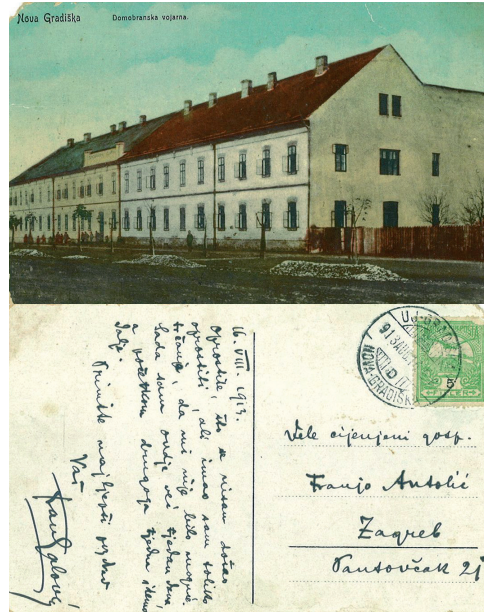 Nova Gradiška
Domobranska vojarna.
16. VIII. 1913.
Oprostite, što se nisam došao
oprostiti, ali imao sam toliko
da mi nije bilo moguće.
Sada sam ovdje već tjedan dana,
a početkom drugoga tjedna idemo
dalje.
Primite najljepši pozdrav
Vaš
UJ-GRADISKA
913 AUG.
D
NOVA GRADIŠKA
5
FILLÉR
Vele cijenjeni gosp.
Franjo Antolić
Zagreb
Pantovčak 21